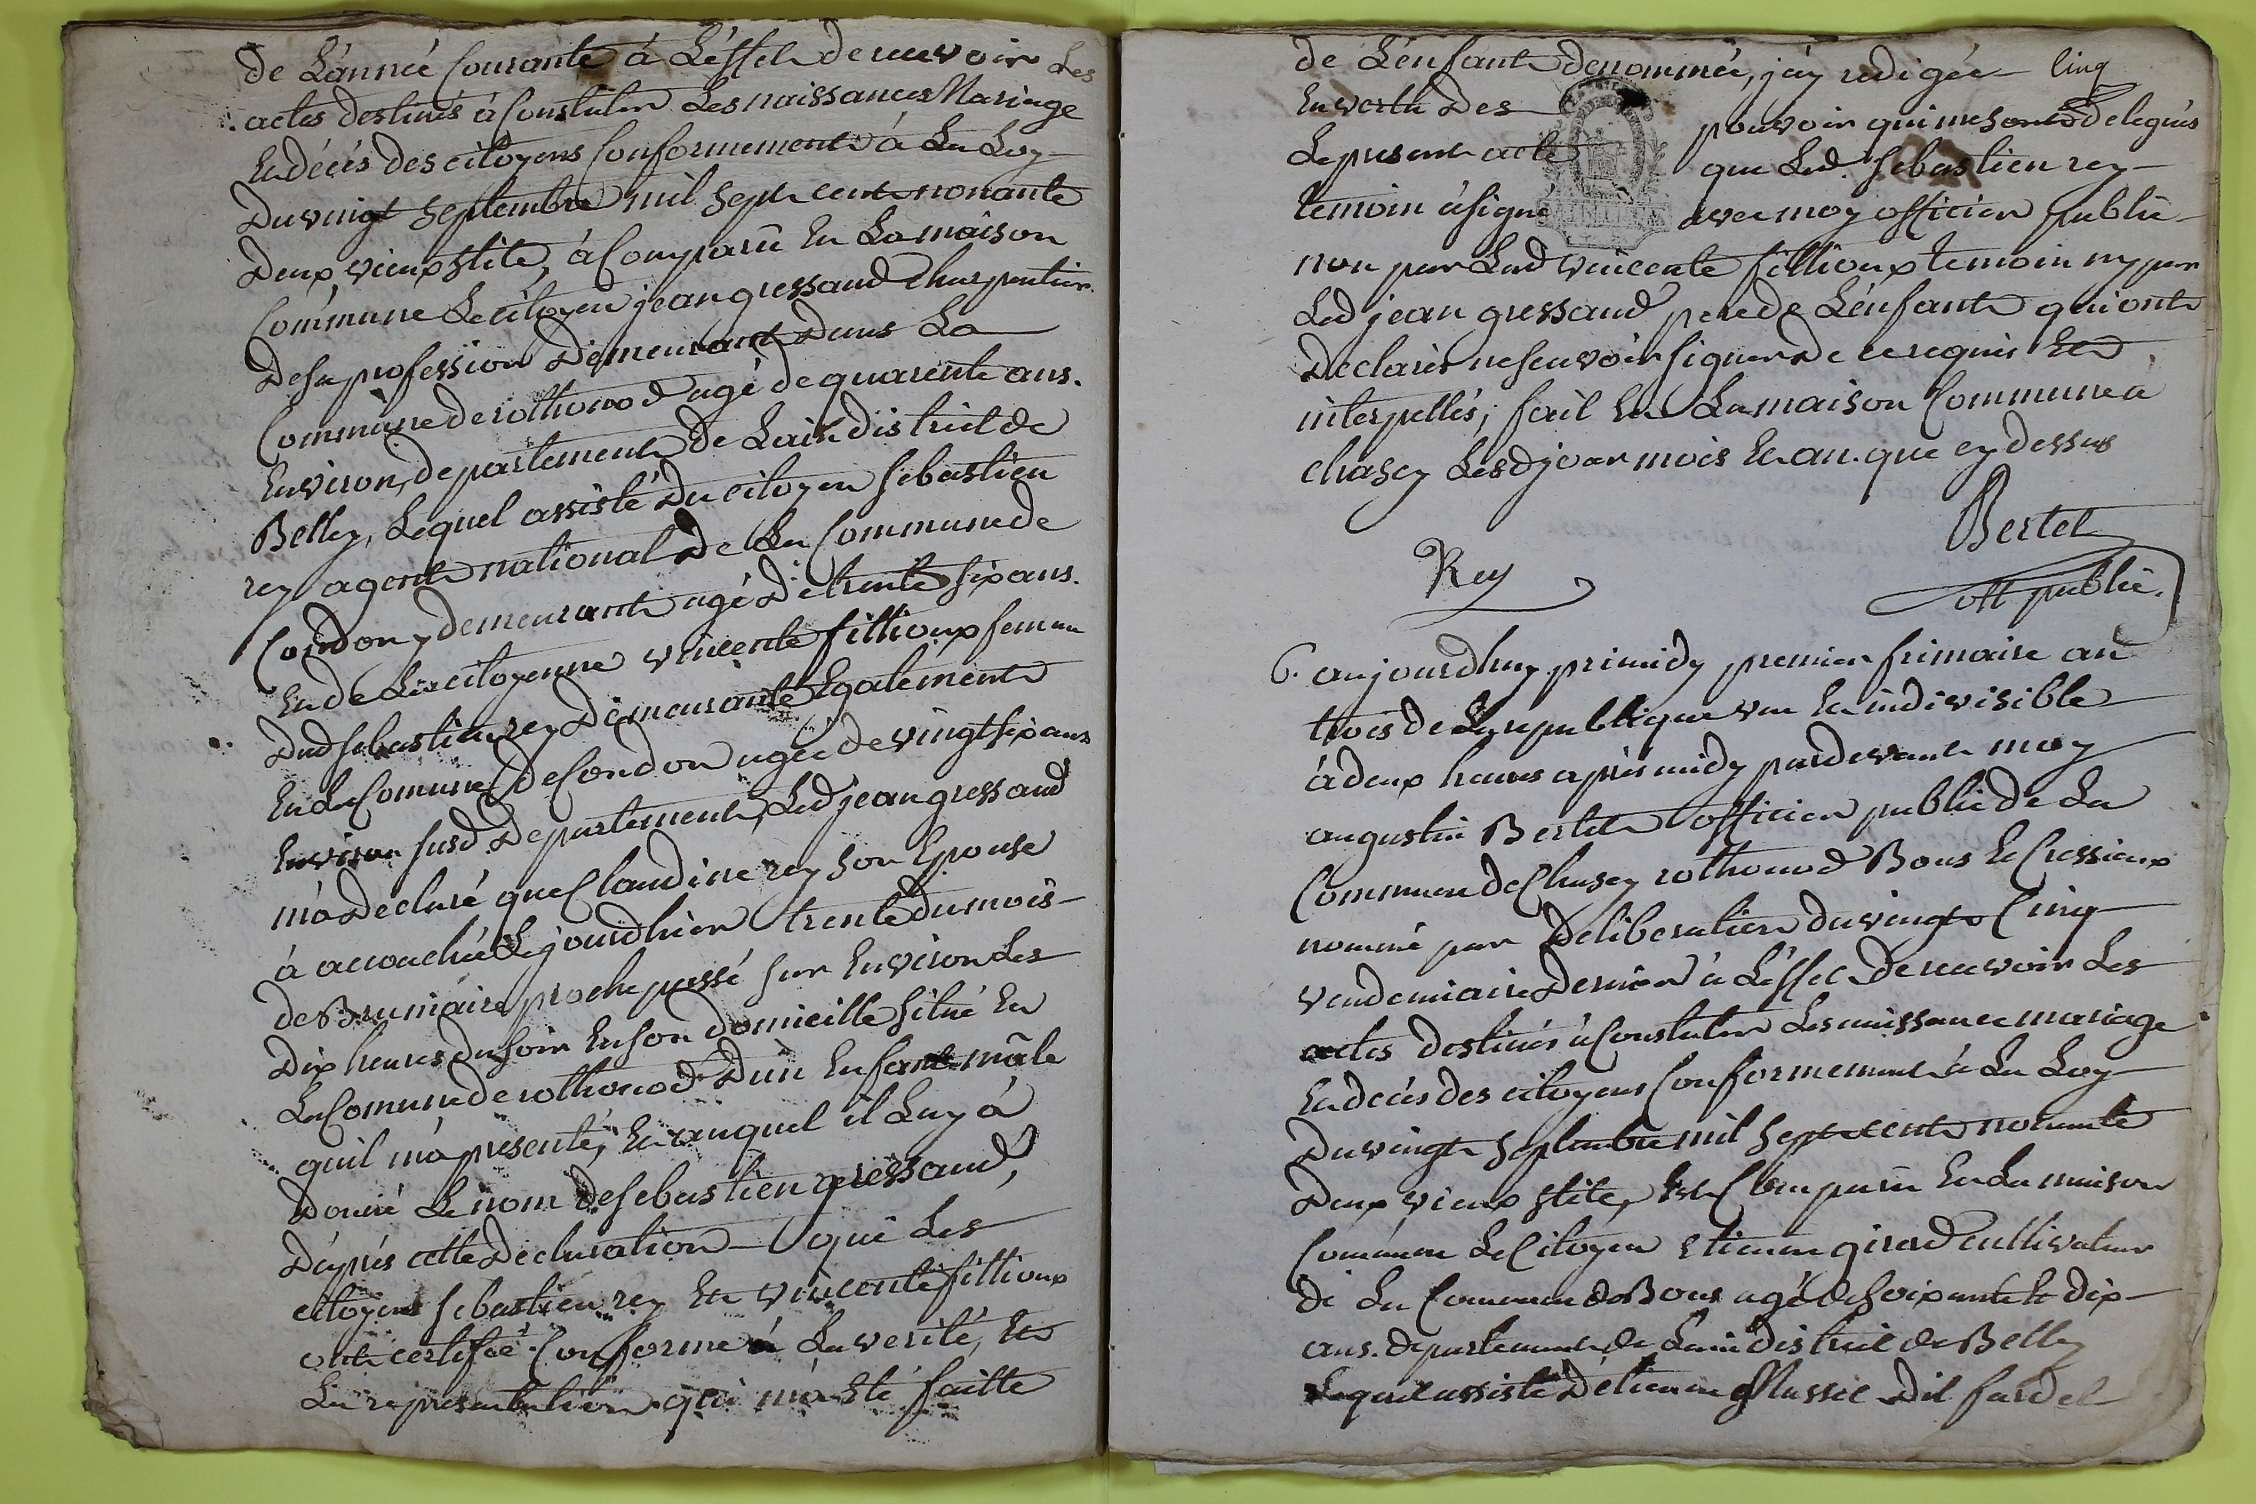 de L'année Courante à L'éffet de recevoir Les
actes destinés à Constater Les naissances Mariage
Et décès des citoyens Conformement à La Loy
Du vingt septembre mil sept cent nonante
Deux vieux stile, à Comparû En La maison
Commune Le citoyen jean gressaud Charpentier
De sa profession Demeurant Dans La
Commune de rothonod agé de quarente ans
Environ, departement de L'ain district de
Belley, Lequel assisté Du citoyen sebastien
rey agent national De La Commune de
Condon y demeurant agé De trente six ans
Et de La citoyenne vincente fillioux femme
Dud sebastien rey Demeurante Egalement
En La Comune De Condon agée de vingt six ans
Environ susd. Departement, Led jean gressaud
m'a Declaré que Claudine rey son Epouse
à accouchée Le jourdhier trente du mois
de Brumaire proche passé sur Environ Les
Dix heures du soir En son domicille situé En
La Comune de rothonod D'un Enfant mâle
quil m'a presenté, Et auquel il Luy à
Donné Le nom de sebastien gressaud,
D'après cette Declaration que Les
citoyens sebastien rey Et vincente fillioux
ont certifié Conforme à La verité, Et
La representation qui m'a Eté faitte
de L'enfant denommé, j'ay redigée
Cinq
En vertu Des pouvoir qui me sont delegués
Le present acte que Led. sebastien rey
temoin à signé avec moy officier public
non par Lad vincente fillioux temoin ny par
Led jean gressaud pere de L'enfant qui ont
Declarés ne scavoir signer de ce requis Et
interpellés, fait En La maison Commune à
chasey Lesd jour mois Et an que cy dessus
Bertet
Rey
off public.
6. aujourdhuy primidy premier frimaire an
trois de La republique une Et indivisible
à deux heures après midy pardevant moy
augustin Bertet officier public de La
Commune de Chasey rothonod Bons Et Cressieux
nommé par Deliberation du vingt Cinq
vendemiaire Dernier à L'éffet De recevoir Les
actes destinés à Constater Les naissance mariage
Et décès des citoyens Conformement à La Loy
Du vingt septembre mil sept cent nonante
Deux vieux stile, Est Comparû En La maison
Commune Le Citoyen Etienne girod cultivateur
de La Commune de Bons agé de soixante dix
ans. departement de L'ain district de Belley
Lequel assisté D'étienne Massit Dit fardel